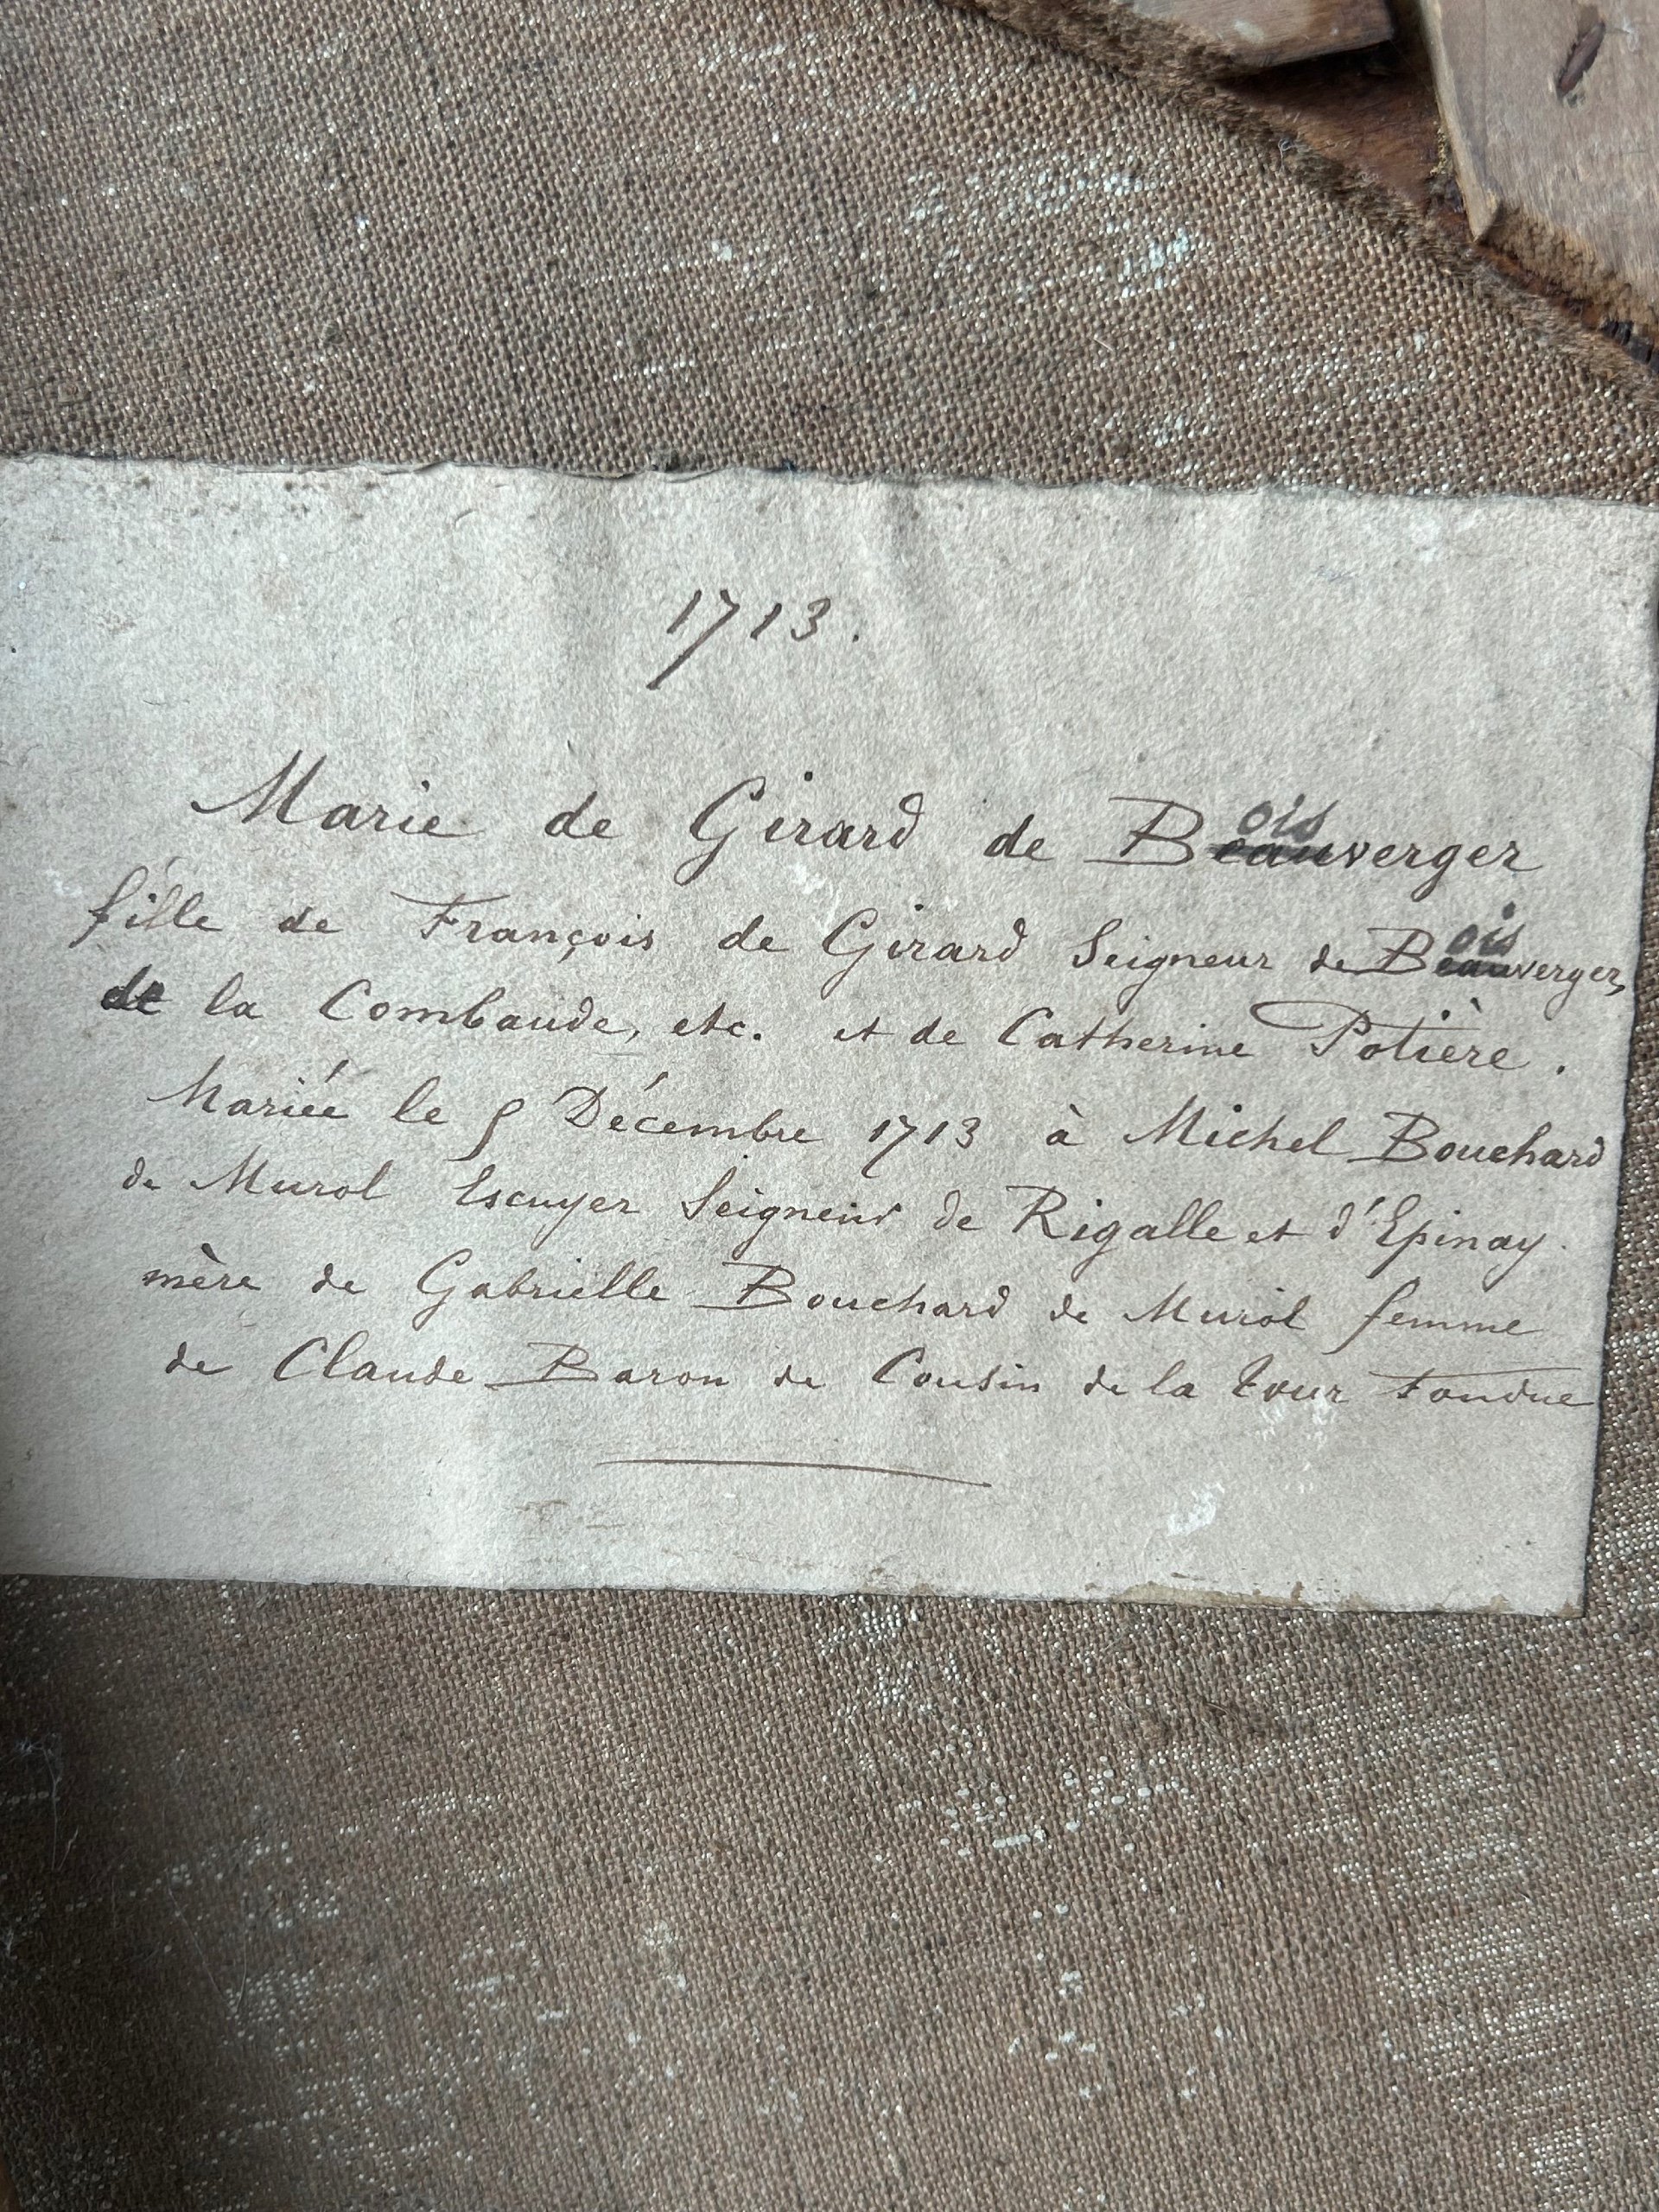 1713.
Marie de Girard de Boisverger
fille de François de Girard Seigneur de Boisverger,
de la Combaude, etc. et de Catherine Potière.
Mariée le 5 Décembre 1713 à Michel Bouchard
de Murol Escuyer Seigneur de Rigalle et d'Epinay.
mère de Gabrielle Bouchard de Murol femme
de Claude Baron de Cousin de la tour fondue